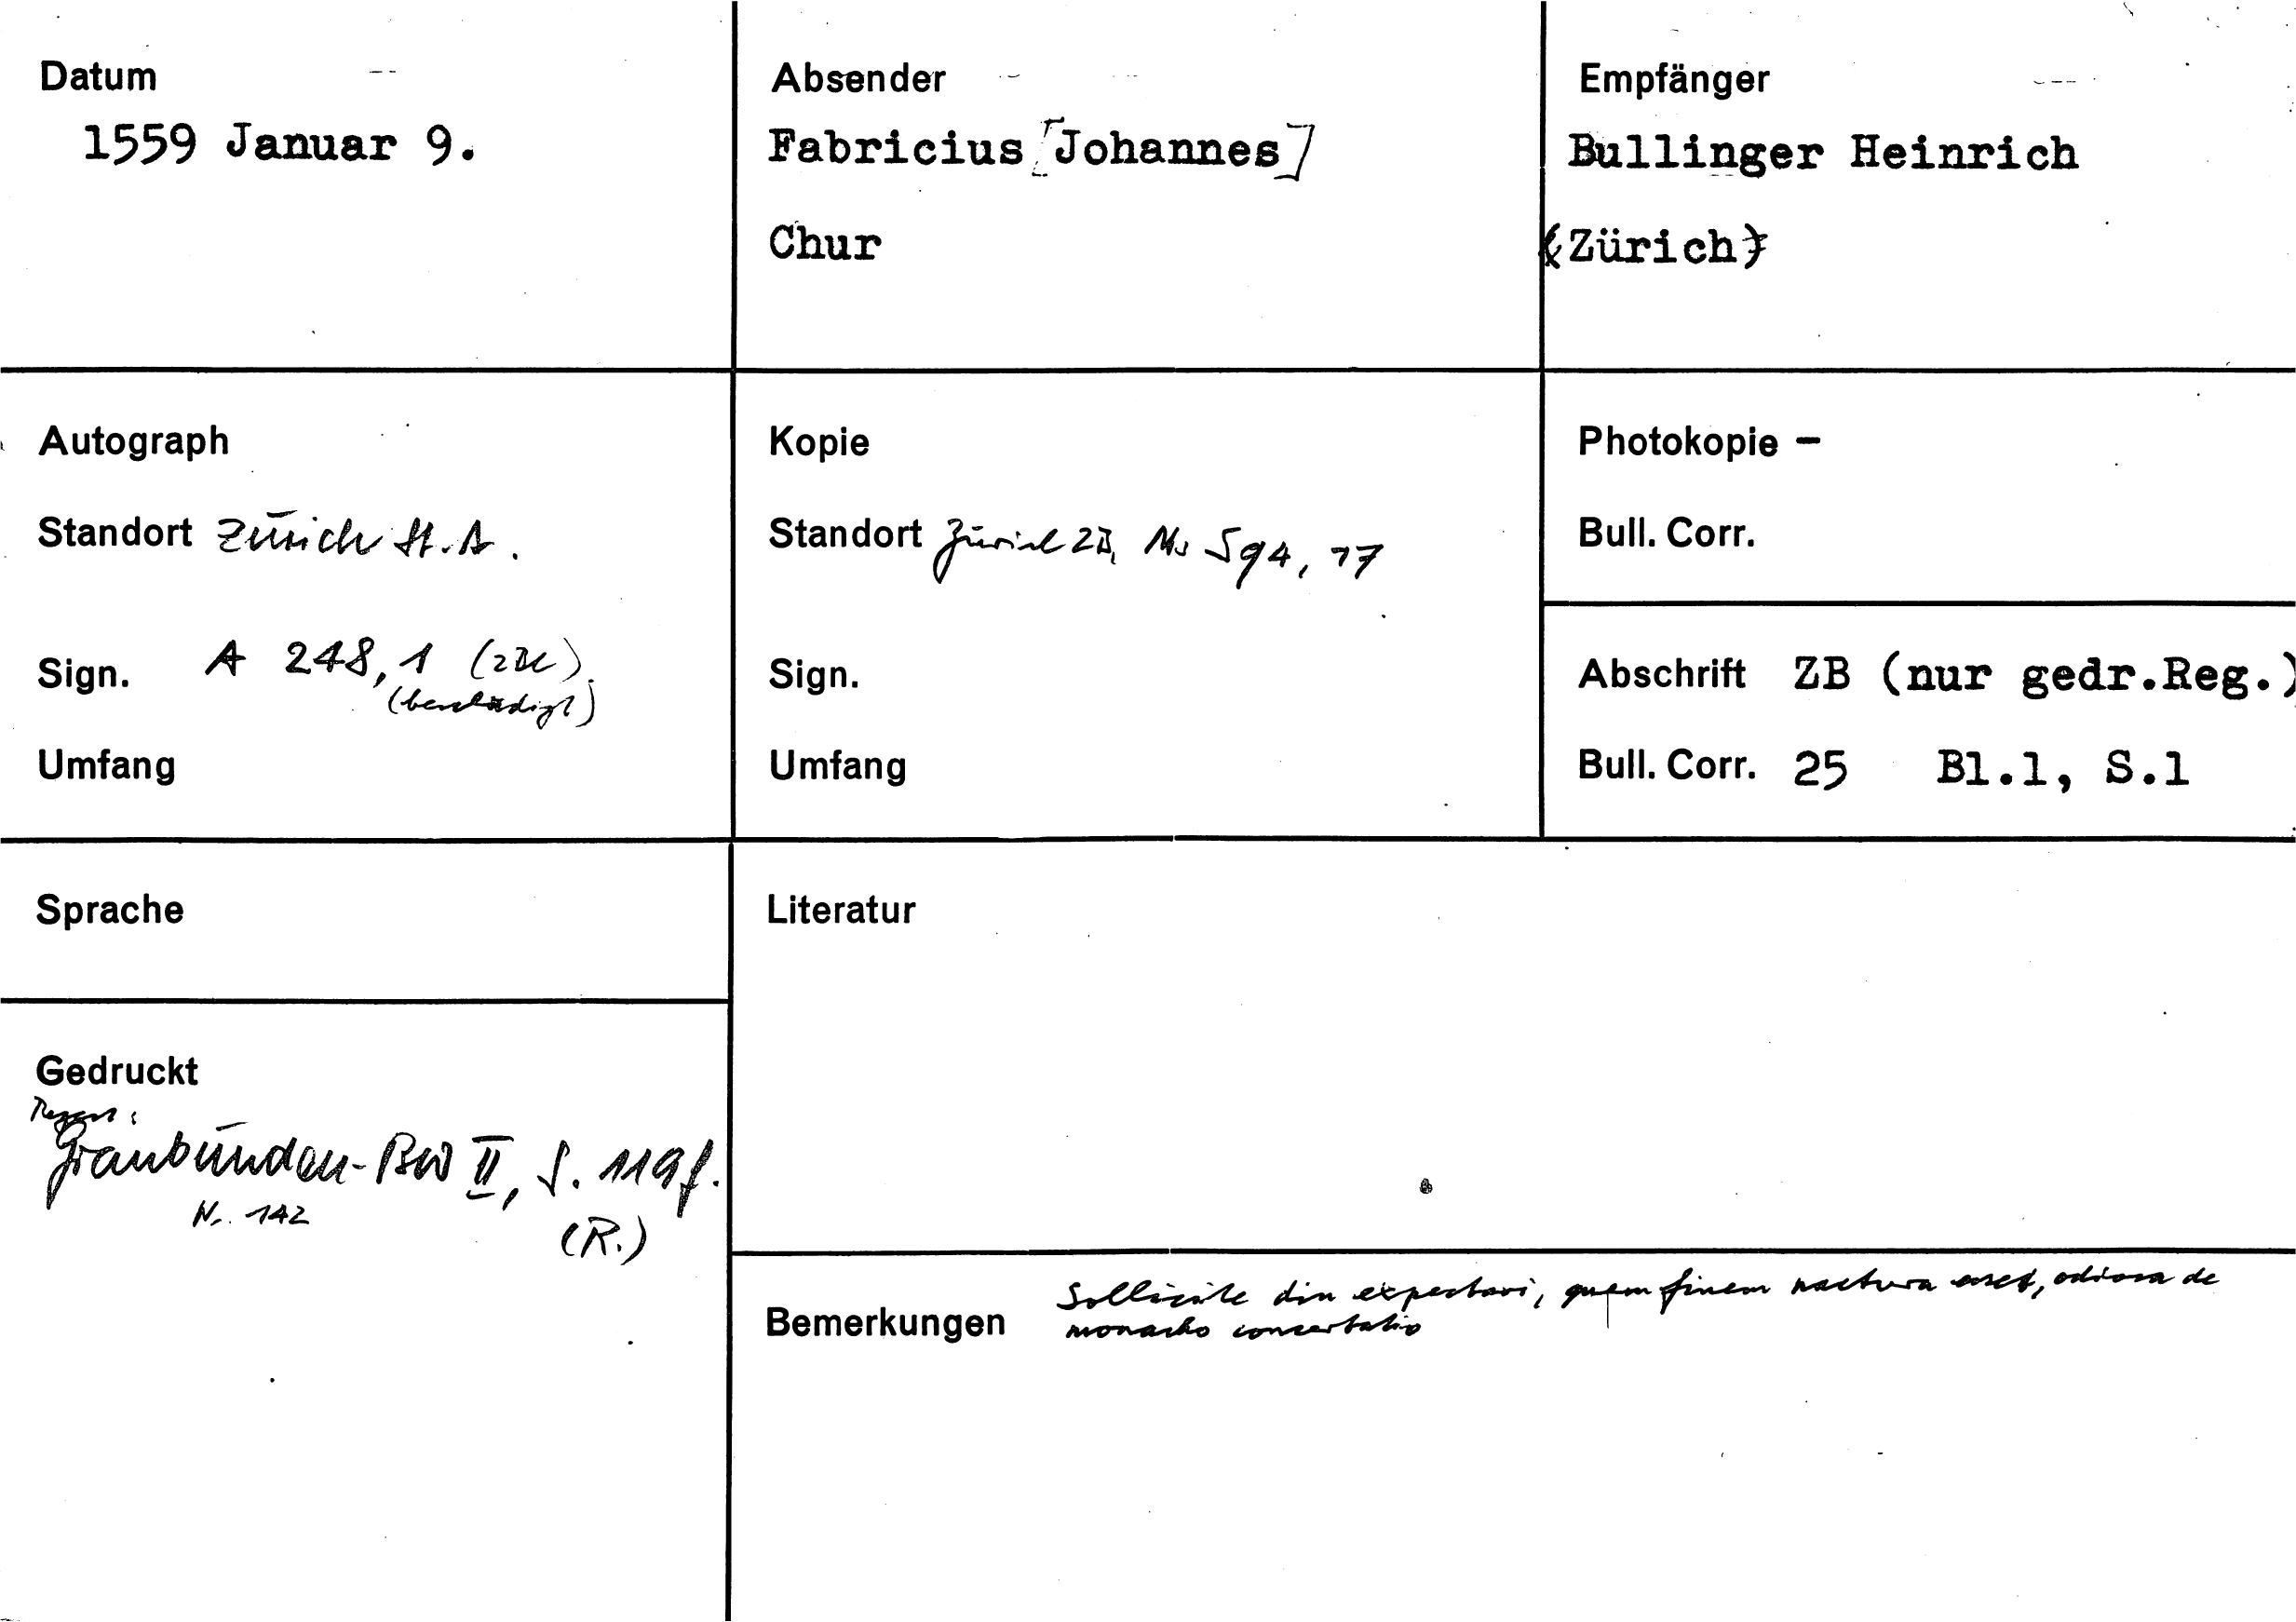 Datum
1559 Januar 9.
Absender
Fabricius [Johannes]
Chur
Empfänger
Bullinger Heinrich
(Zürich)
Autograph
Standort Zürich St.A.
Sign. A 248,1 (2Bl).
(beschädigt)
Umfang
Kopie
Standort Zürich ZB, Ms S 94, 77
Sign.
Umfang
Photokopie –
Bull. Corr.
Abschrift ZB (nur gedr.Reg.)
Bull. Corr. 25 Bl.1, S.1
Sprache
Gedruckt
Regest:
Graubünden-BW II, S. 119f.
Nr. 142
(R.)
Literatur
Bemerkungen
Sollicite diu expectavi, quem finem nactura esset, odiosa de
monacho concertatio